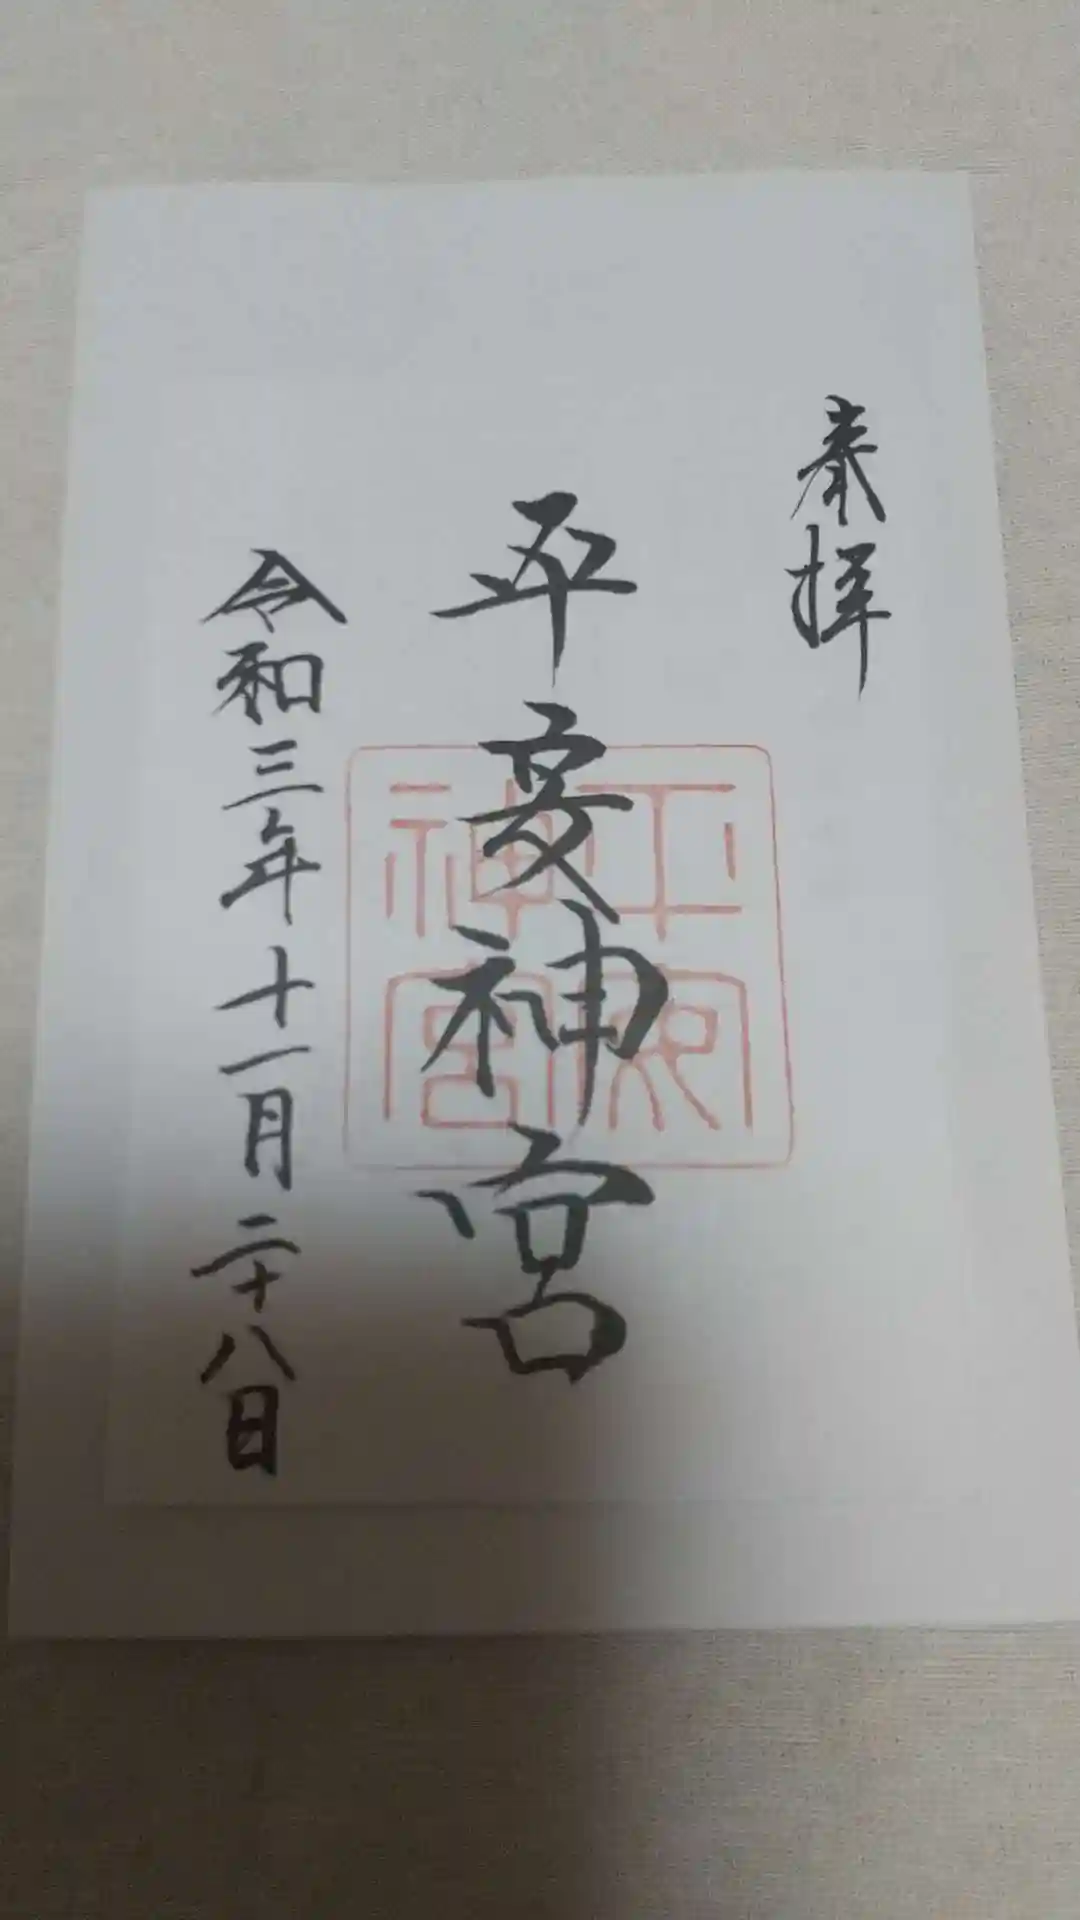 奉拝
平安神宮
令和三年十一月二十八日
平安
神宮